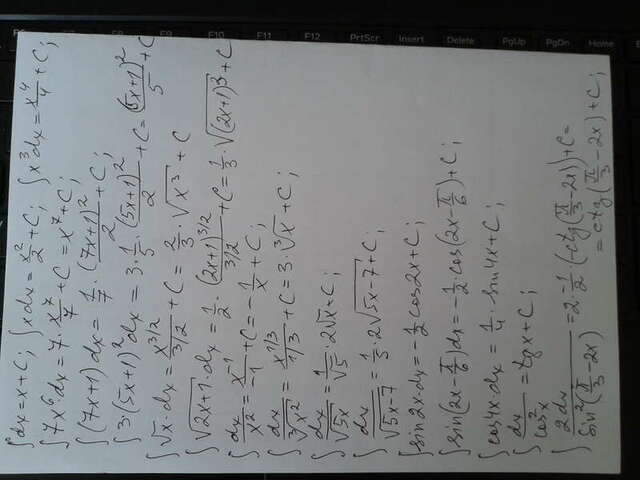 F9 F10 F11 F12 PrtScr Insert Delete PgUp PgDn Home
∫dx = x + C; ∫x dx = x²/2 + C; ∫x³dx = x⁴/4 + C;
∫7x⁶·dx = 7·x⁷/7 + C = x⁷ + C;
∫(7x+1)dx = 1/7·(7x+1)²/2 + C;
∫3(5x+1)²dx = 3·1/5·(5x+1)²/2 + C = (5x+1)²/5 + C
∫√x·dx = x^(3/2)/(3/2) + C = 2/3·√(x³) + C
∫√(2x+1)·dx = 1/2·(2x+1)^(3/2)/(3/2) + C = 1/3·√((2x+1)³) + C
∫dx/x² = x⁻¹/-1 + C = -1/x + C;
∫dx/∛(x²) = x^(1/3)/(1/3) + C = 3·∛x + C;
∫dx/√(5x) = 1/√5·2√x + C;
∫dx/√(5x-7) = 1/5·2√(5x-7) + C;
∫sin2x·dx = -1/2 cos2x + C;
∫sin(2x-π/6)dx = -1/2·cos(2x-π/6) + C;
∫cos4x·dx = 1/4·sin4x + C;
∫dx/cos²x = tgx + C;
∫2dx/sin²(π/3-2x) = 2·-1/2·(-ctg(π/3-2x)) + C =
= ctg(π/3-2x) + C;